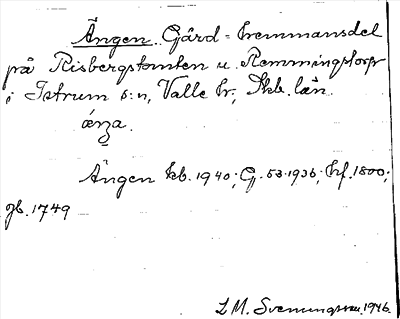 Ängen. Gård = hemmansdel
på Risbergstomten u. Remmingstorp
i Istrum s:n, Valle hr; Skb. län.
ä́ŋa.
Ängen kb. 1940; G. 53 1936; hf. 1800;
jb. 1749
L M. Svenungsson 1946.